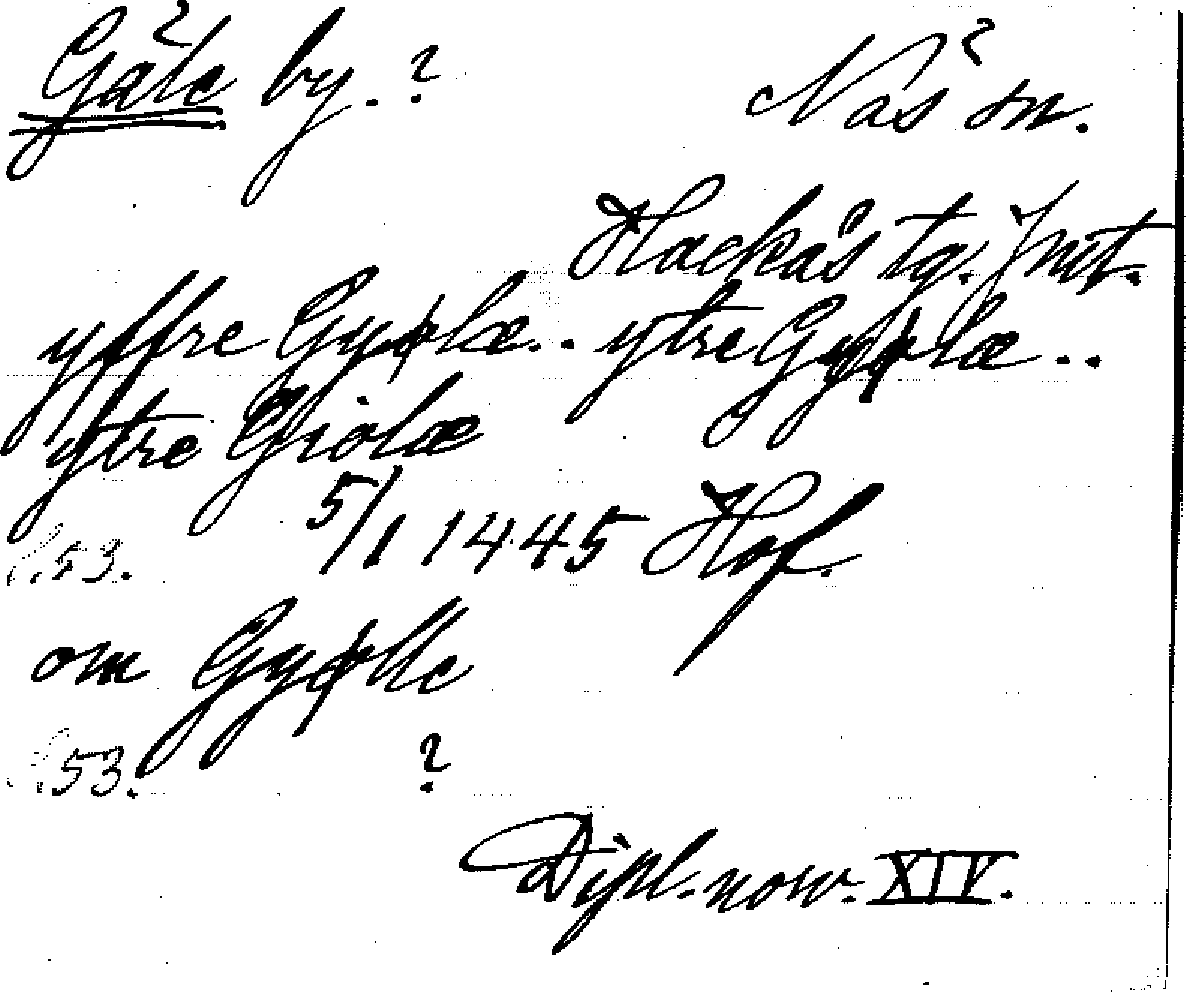 Gäle by. ? Näs sn.
Hackås tg. Jmt.
yffre Gyølæ.. ytre Gyølæ..
ytre Giolæ
s.53. 5/1 1445 Hof.
om Gyølle
s.53. ?
Dipl. norv. XIV.